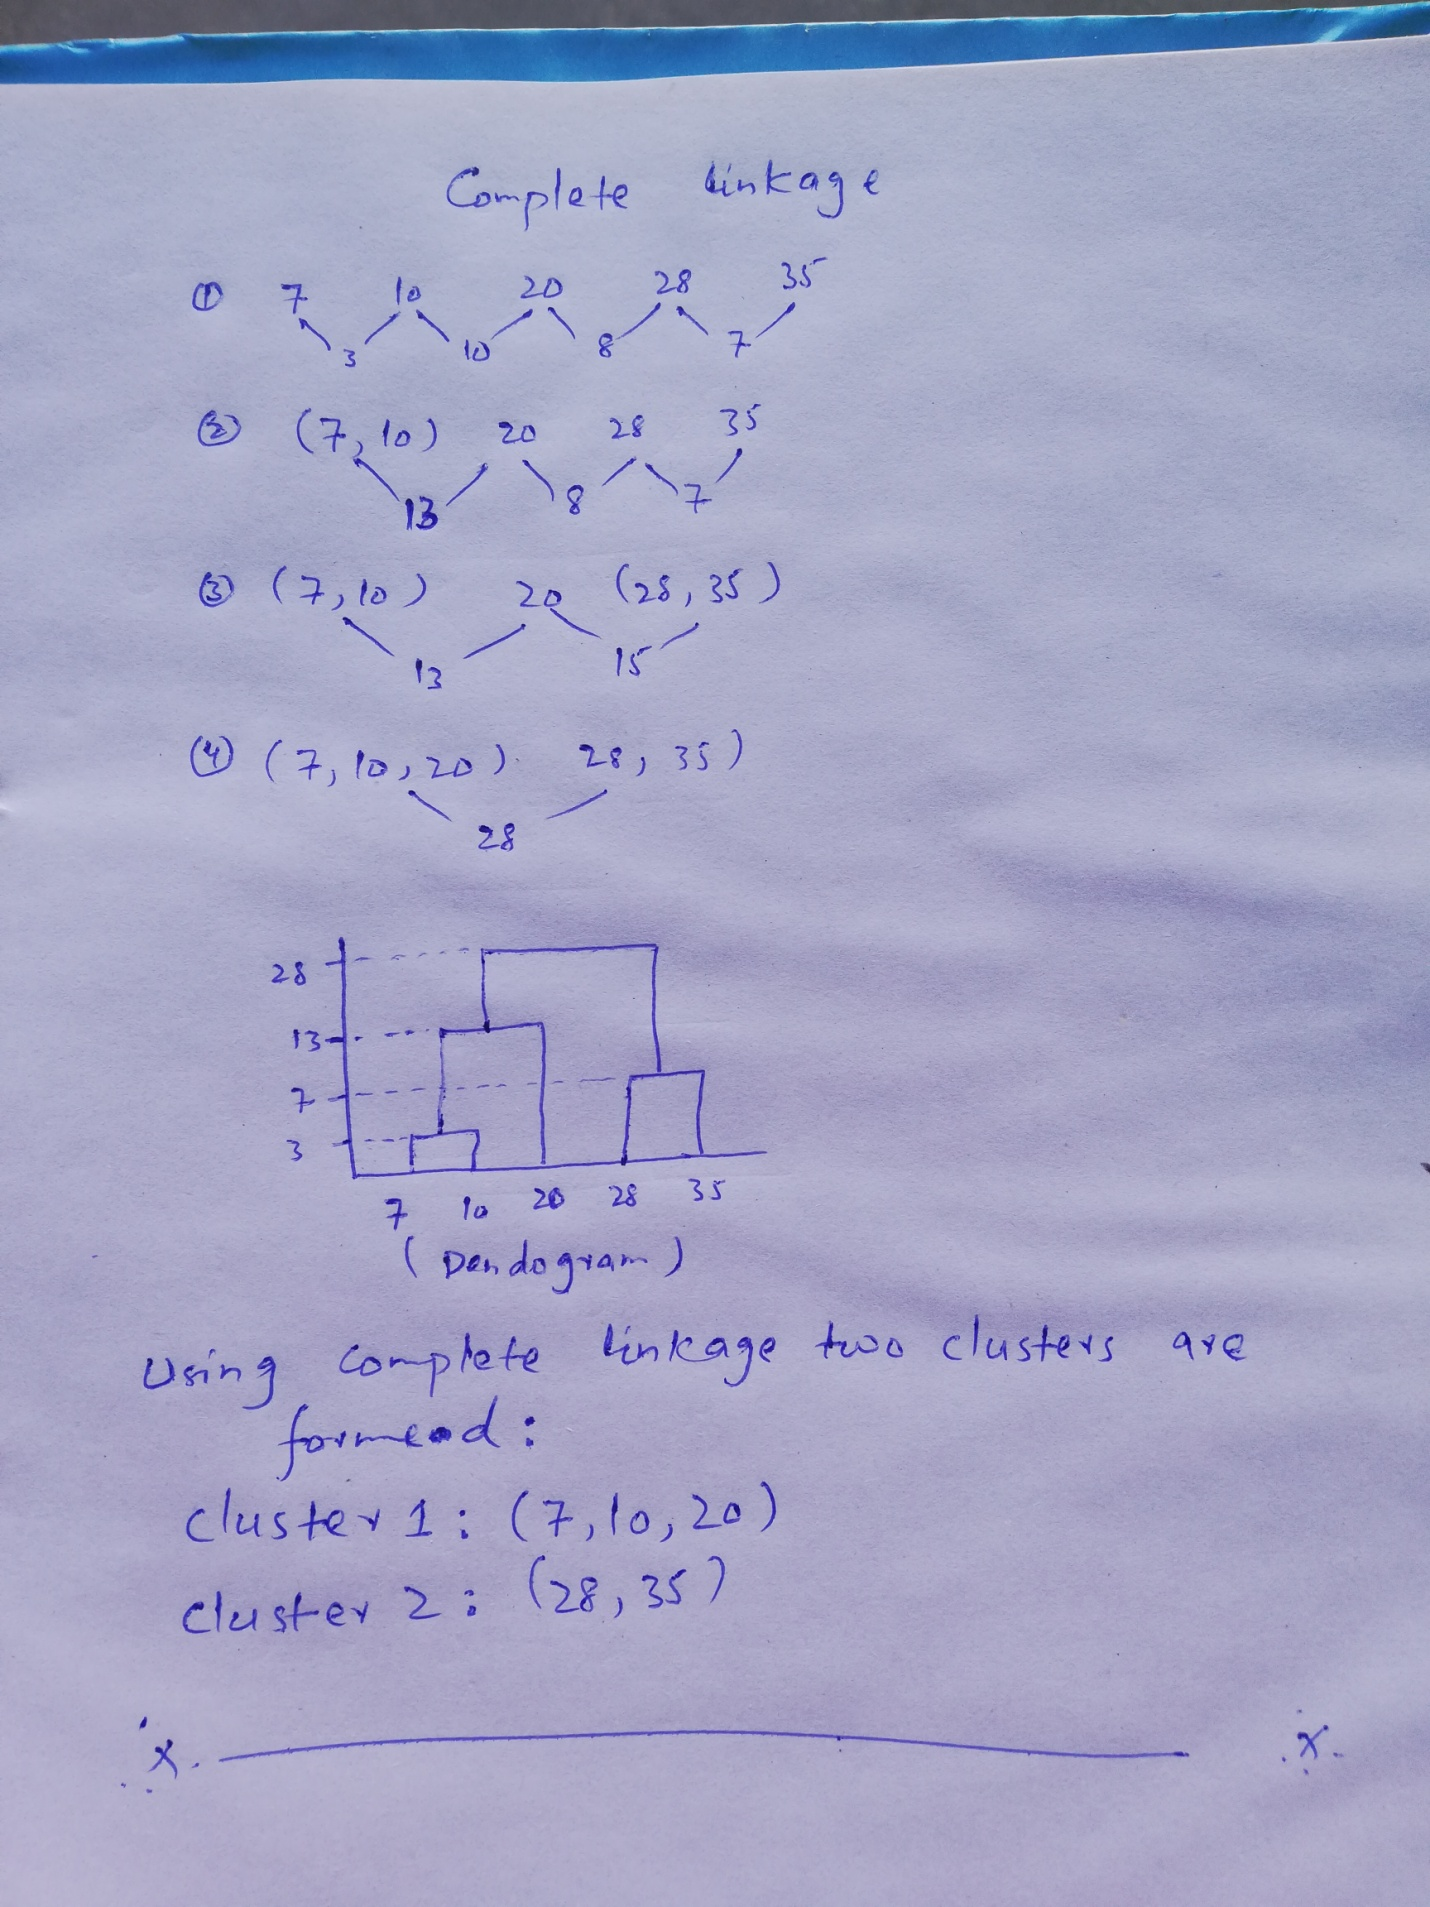 Complete linkage
① 7 10 20 28 35
3 10 8 7
② (7, 10) 20 28 35
13 8 7
③ (7, 10) 20 (28, 35)
13 15
④ (7, 10, 20) 28, 35)
28
28
13
7
3
7 10 20 28 35
(Dendogram)
Using complete linkage two clusters are
formead:
cluster 1: (7, 10, 20)
cluster 2: (28, 35)
x. .x.